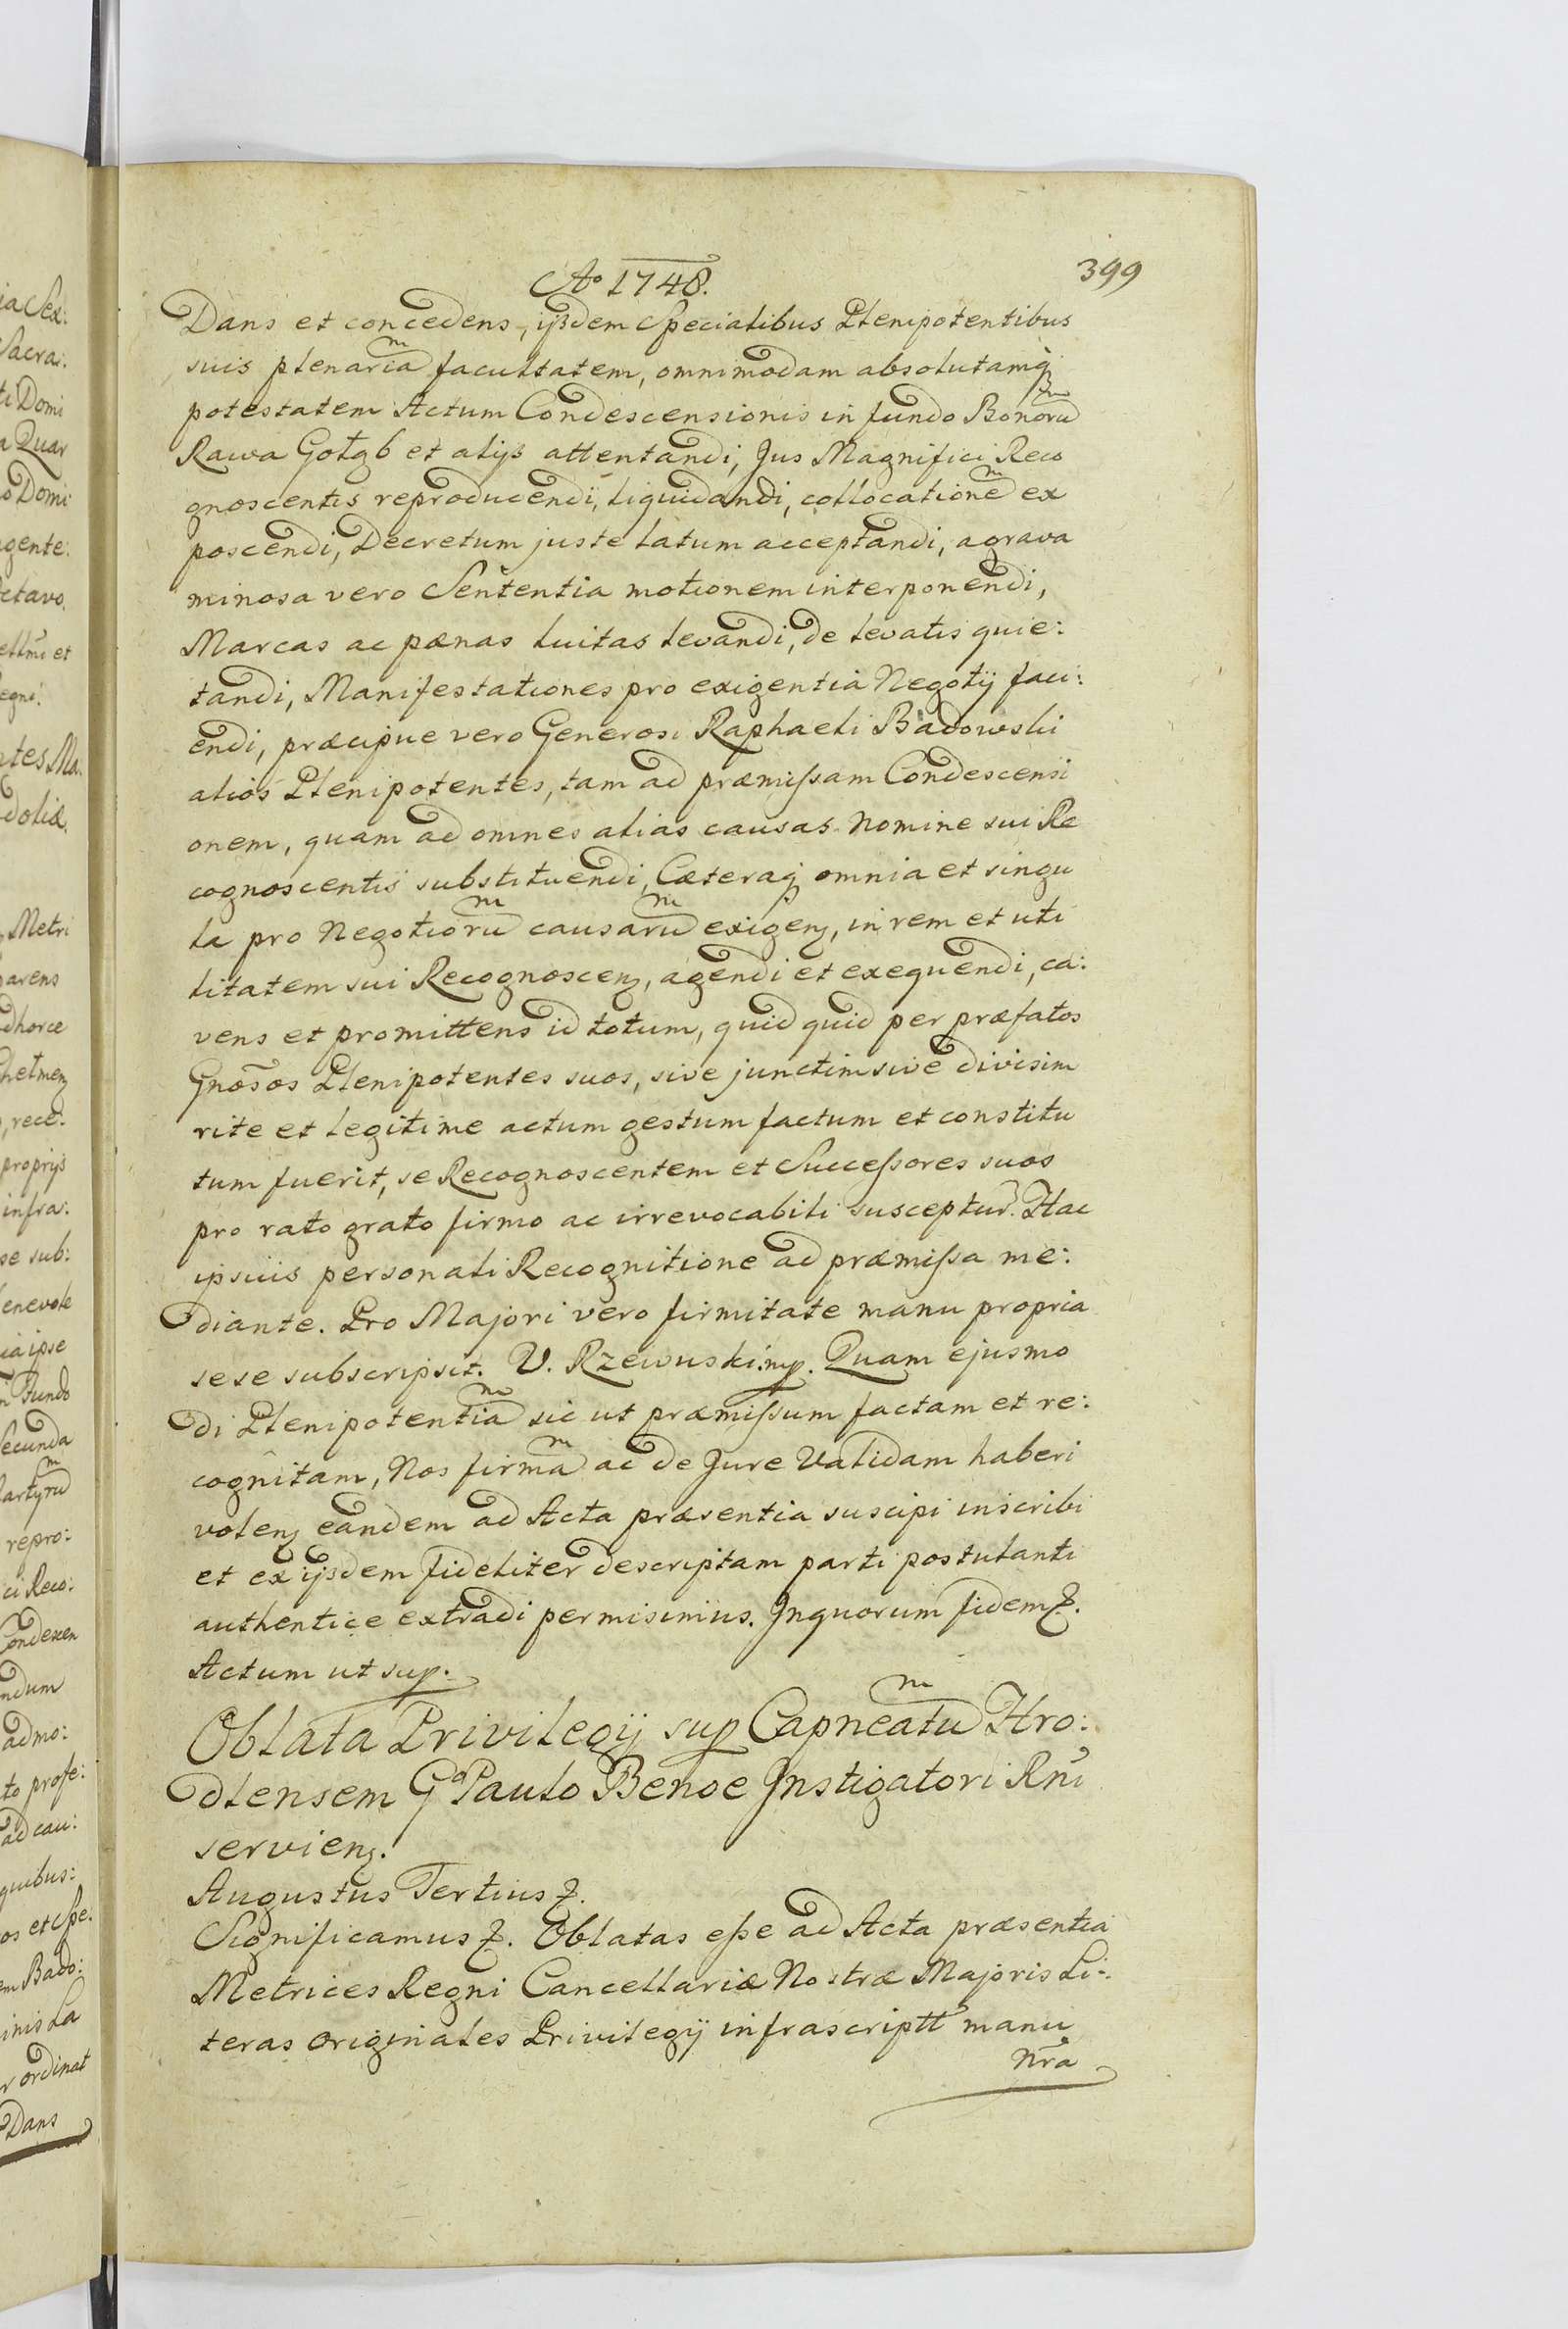 Ao 1748.
399
Dans et concedens, ijsdem Specialibus Plenipotentibus
suis plenariam facultatem, omnimodam absolutamq
potestatem Actum Condescensionis in fundo Bonorum
Rawa Gołąb et alijs attentandi, Jus Magnifici Reco
gnoscentis reproducendi, liquidandi, collocationem ex
poscendi, Decretum juste latum acceptandi, a grava
minosa vero Sententia motionem interponendi,
Marcas ac pœnas luitas levandi, de levatis quie:
tandi, Manifestationes pro exigentia Negotij faci:
endi, præcipue vero Generosi Raphaeli Badowski
alios Plenipotentes, tam ad præmissam Condescensi
onem, quam ad omnes alias causas Nomine sui Re
cognoscentis substituendi, Cæteraq omnia et singu
la pro Negotiorum causarum exigen, in rem et uti
litatem sui Recognoscen, agendi et exequendi, ca:
vens et promittens id totum, quidquid per præfatos
Gnosos Plenipotentes suos, sive junctim sive divisim
rite et legitime actum gestum factum et constitu
tum fuerit, se Recognoscentem et Successores suos
pro rato grato firmo ac irrevocabili susceptur. Hac
ipsius personali Recognitione ad præmissa me:
diante. Pro Majori vero firmitate manu propria
sese subscripsit. V. Rzewuski mp. Quam ejusmo
di Plenipotentiam sic ut præmissum factam et re:
cognitam, Nos firmam ac de Jure Validam haberi
volen eandem ad Acta præsentia suscipi inscribi
et ex ijsdem fideliter descriptam parti postulanti
authentice extradi permisimus. In quorum fidem &.
Actum ut sup.
Oblata Privilegij sup Capneatum Hro:
dlensem Go Paulo Benoe Instigatori Rni
servien.
Augustus Tertius &.
Significamus &. Oblatas esse ad Acta præsentia
Metrices Regni Cancellariæ Nostræ Majoris Li:
teras originales Privilegij infrascriptt manu
nra